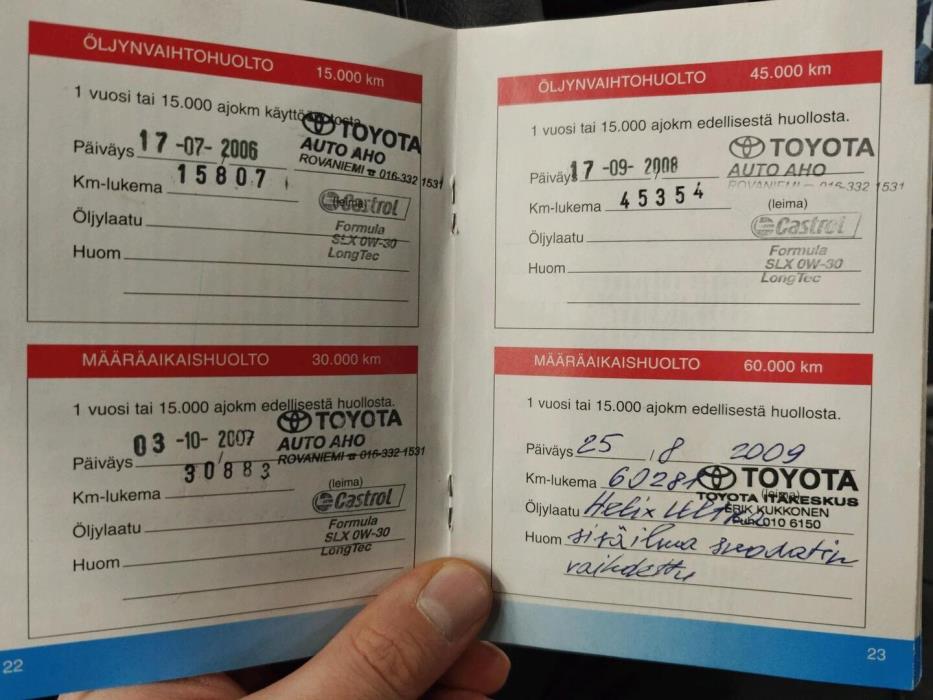 ÖLJYNVAIHTOHUOLTO 15.000 km
1 vuosi tai 15.000 ajokm käyttöönotosta.
TOYOTA
AUTO AHO
ROVANIEMI ☎ 016-332 1531
Päiväys 17 -07- 2006
Km-lukema 15807
(leima)
Castrol
Öljylaatu
Formula
SLX 0W-30
LongTec
Huom
MÄÄRÄAIKAISHUOLTO 30.000 km
1 vuosi tai 15.000 ajokm edellisestä huollosta.
TOYOTA
AUTO AHO
ROVANIEMI ☎ 016-332 1531
Päiväys 03 -10- 2007
Km-lukema 30883
(leima)
Castrol
Öljylaatu
Formula
SLX 0W-30
LongTec
Huom
22
ÖLJYNVAIHTOHUOLTO 45.000 km
1 vuosi tai 15.000 ajokm edellisestä huollosta.
TOYOTA
AUTO AHO
ROVANIEMI ☎ 016-332 1531
Päiväys 17 -09- 2008
Km-lukema 45354
(leima)
Castrol
Öljylaatu
Formula
SLX 0W-30
LongTec
Huom
MÄÄRÄAIKAISHUOLTO 60.000 km
1 vuosi tai 15.000 ajokm edellisestä huollosta.
Päiväys 25 / 8 2009
Km-lukema 60281
TOYOTA
TOYOTA ITÄKESKUS
(leima)
ERIK KUKKONEN
Puh. 010 6150
Öljylaatu Helix Ultra
Huom sisäilma suodatin
vaihdettu
23